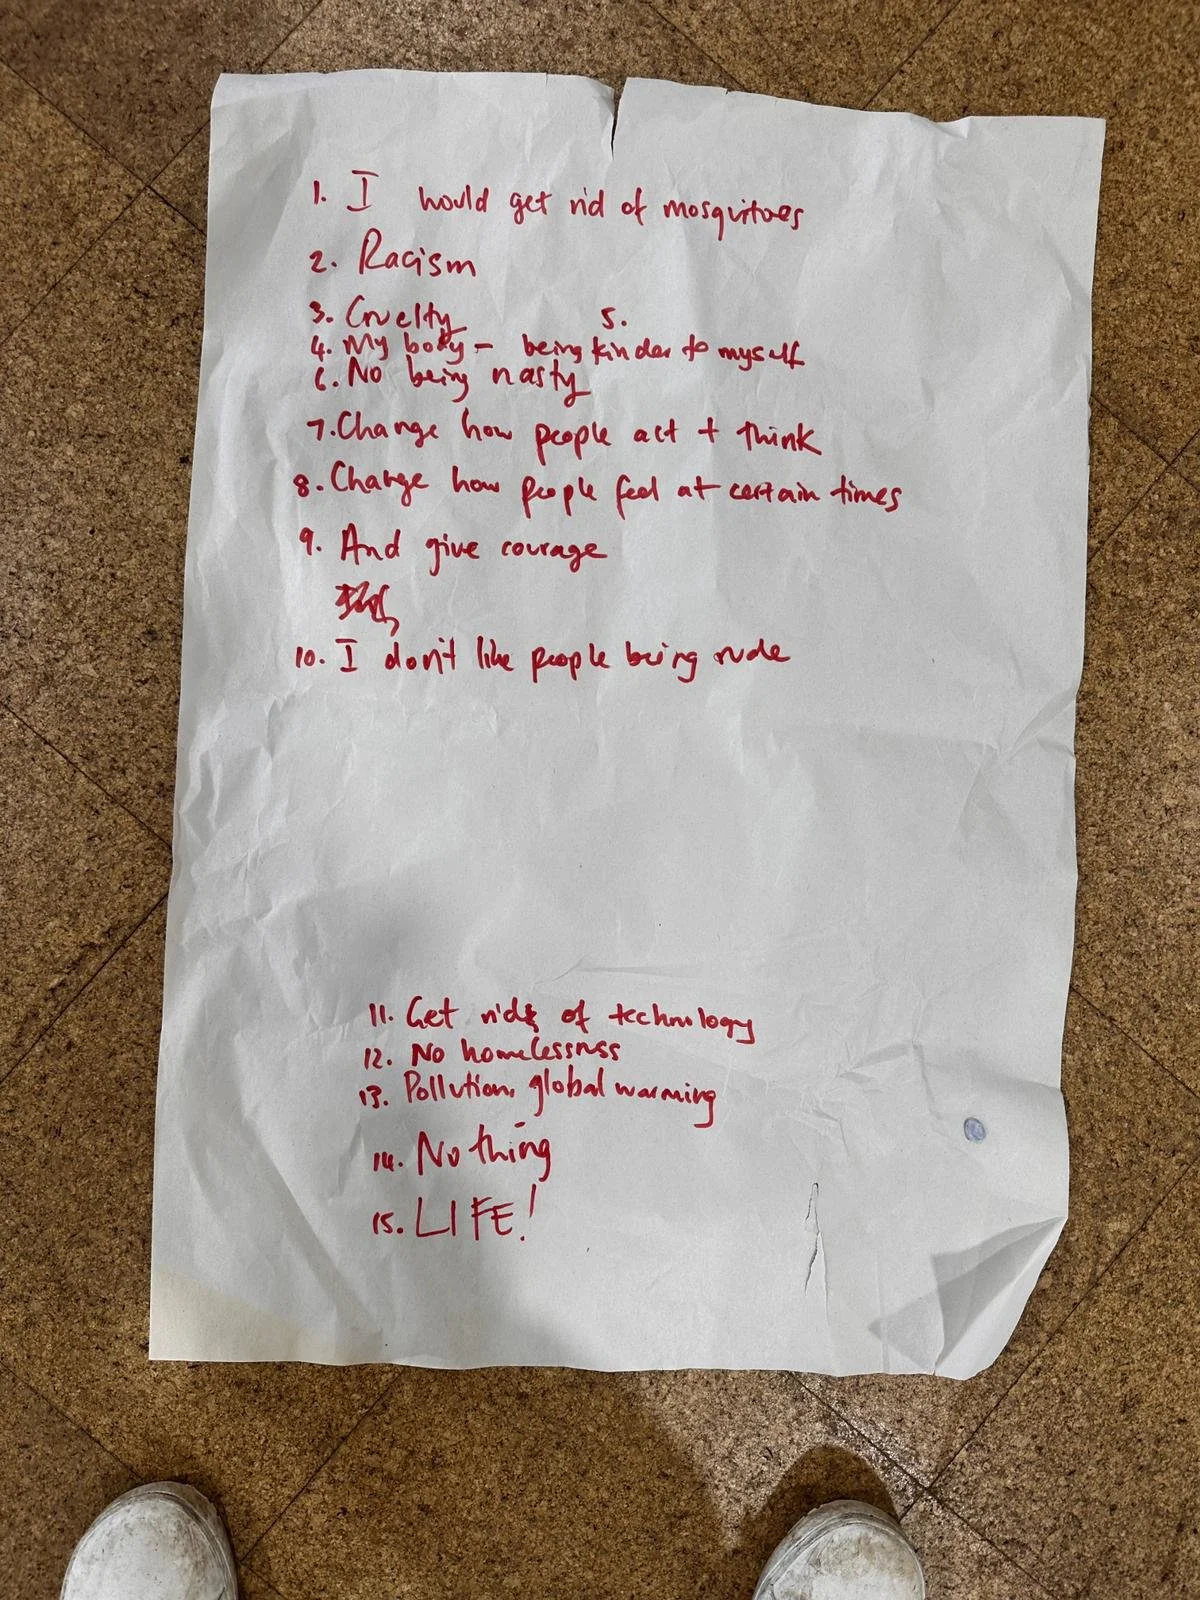 1. I would get rid of mosquitoes
2. Racism
3. Cruelty
5.
4. My body - being kinder to myself
6. No being nasty
7. Change how people act + think
8. Change how people feel at certain times
9. And give courage
10. I don't like people being rude
11. Get rid of technology
12. No homelessness
13. Pollution, global warming
14. Nothing
15. LIFE!